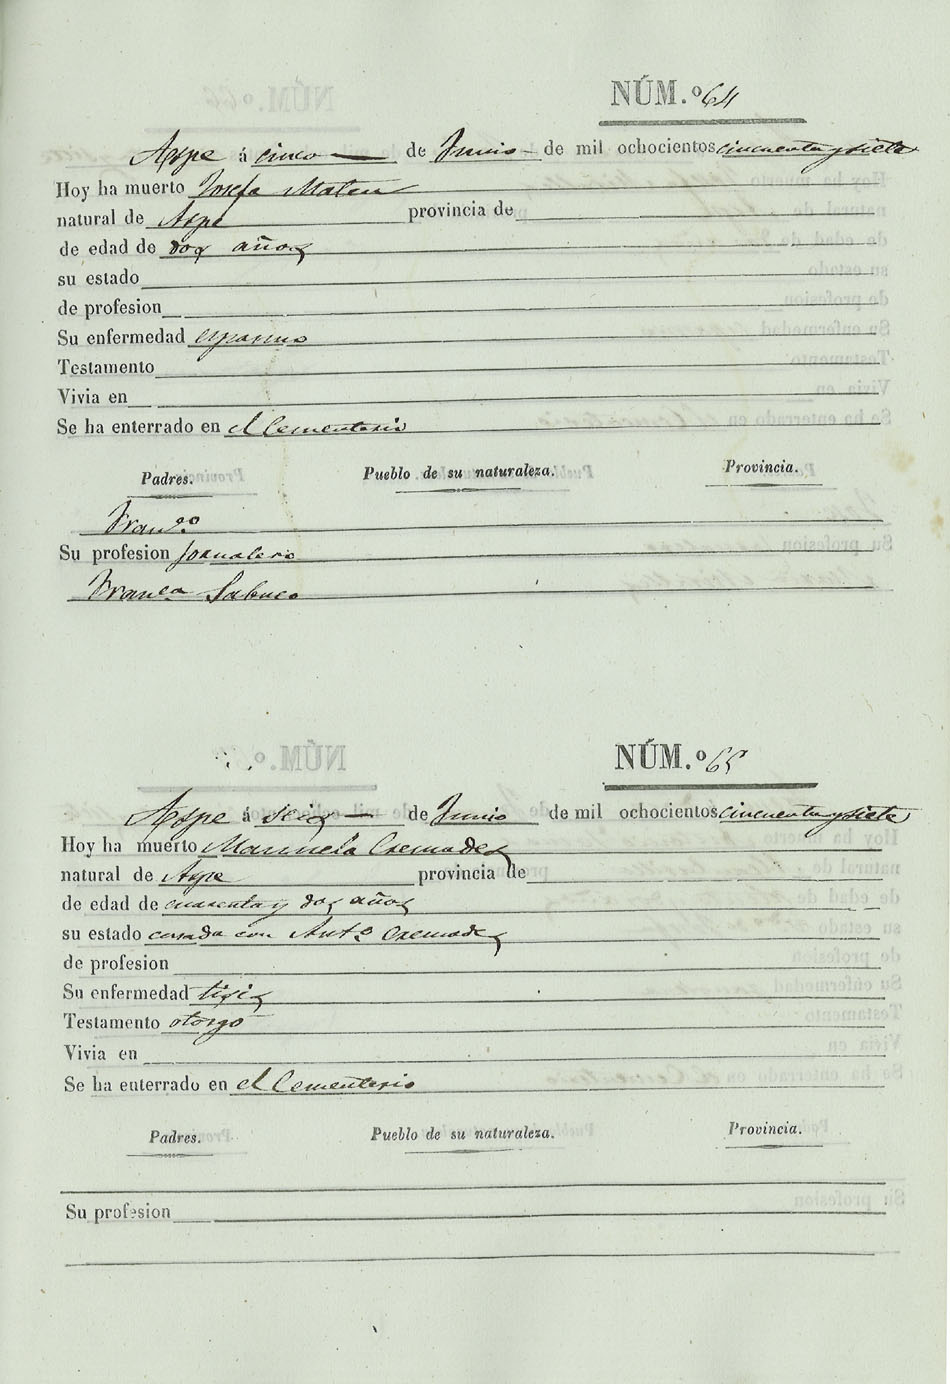 NÚM.º 64
Aspe á cinco de Junio de mil ochocientos cincuenta y siete
Hoy ha muerto Josefa Mateu
natural de Aspe provincia de
de edad de dos años
su estado
de profesion
Su enfermedad espasmo
Testamento
Vivia en
Se ha enterrado en el Cementerio
Padres. Pueblo de su naturaleza. Provincia.
Franco.
Su profesion Jornalero
Franca Sabuco
NÚM.º 65
Aspe á seis de Junio de mil ochocientos cincuenta y siete
Hoy ha muerto Manuela Cremades
natural de Aspe provincia de
de edad de cuarenta y dos años
su estado casada con Anto Cremades
de profesion
Su enfermedad tisis
Testamento otorgó
Vivia en
Se ha enterrado en el Cementerio
Padres. Pueblo de su naturaleza. Provincia.
Su profesion